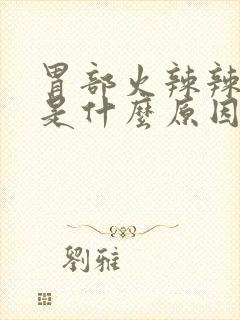 胃部火辣辣
是什麼原因
劉雅